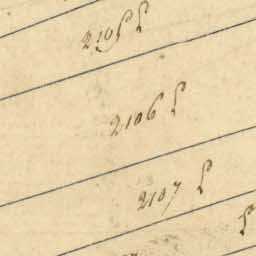 2105 ſ
2106 ſ
2107 ſ
ſ